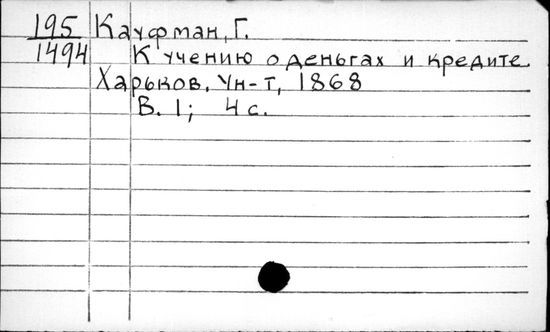 195 Кауфман, Г.
1494 К учению о деньгах и кредите
Харьков. Ун-т, 1868
В. 1; 4 с.